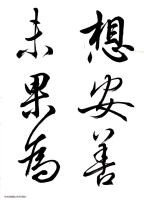 想安善
未果為